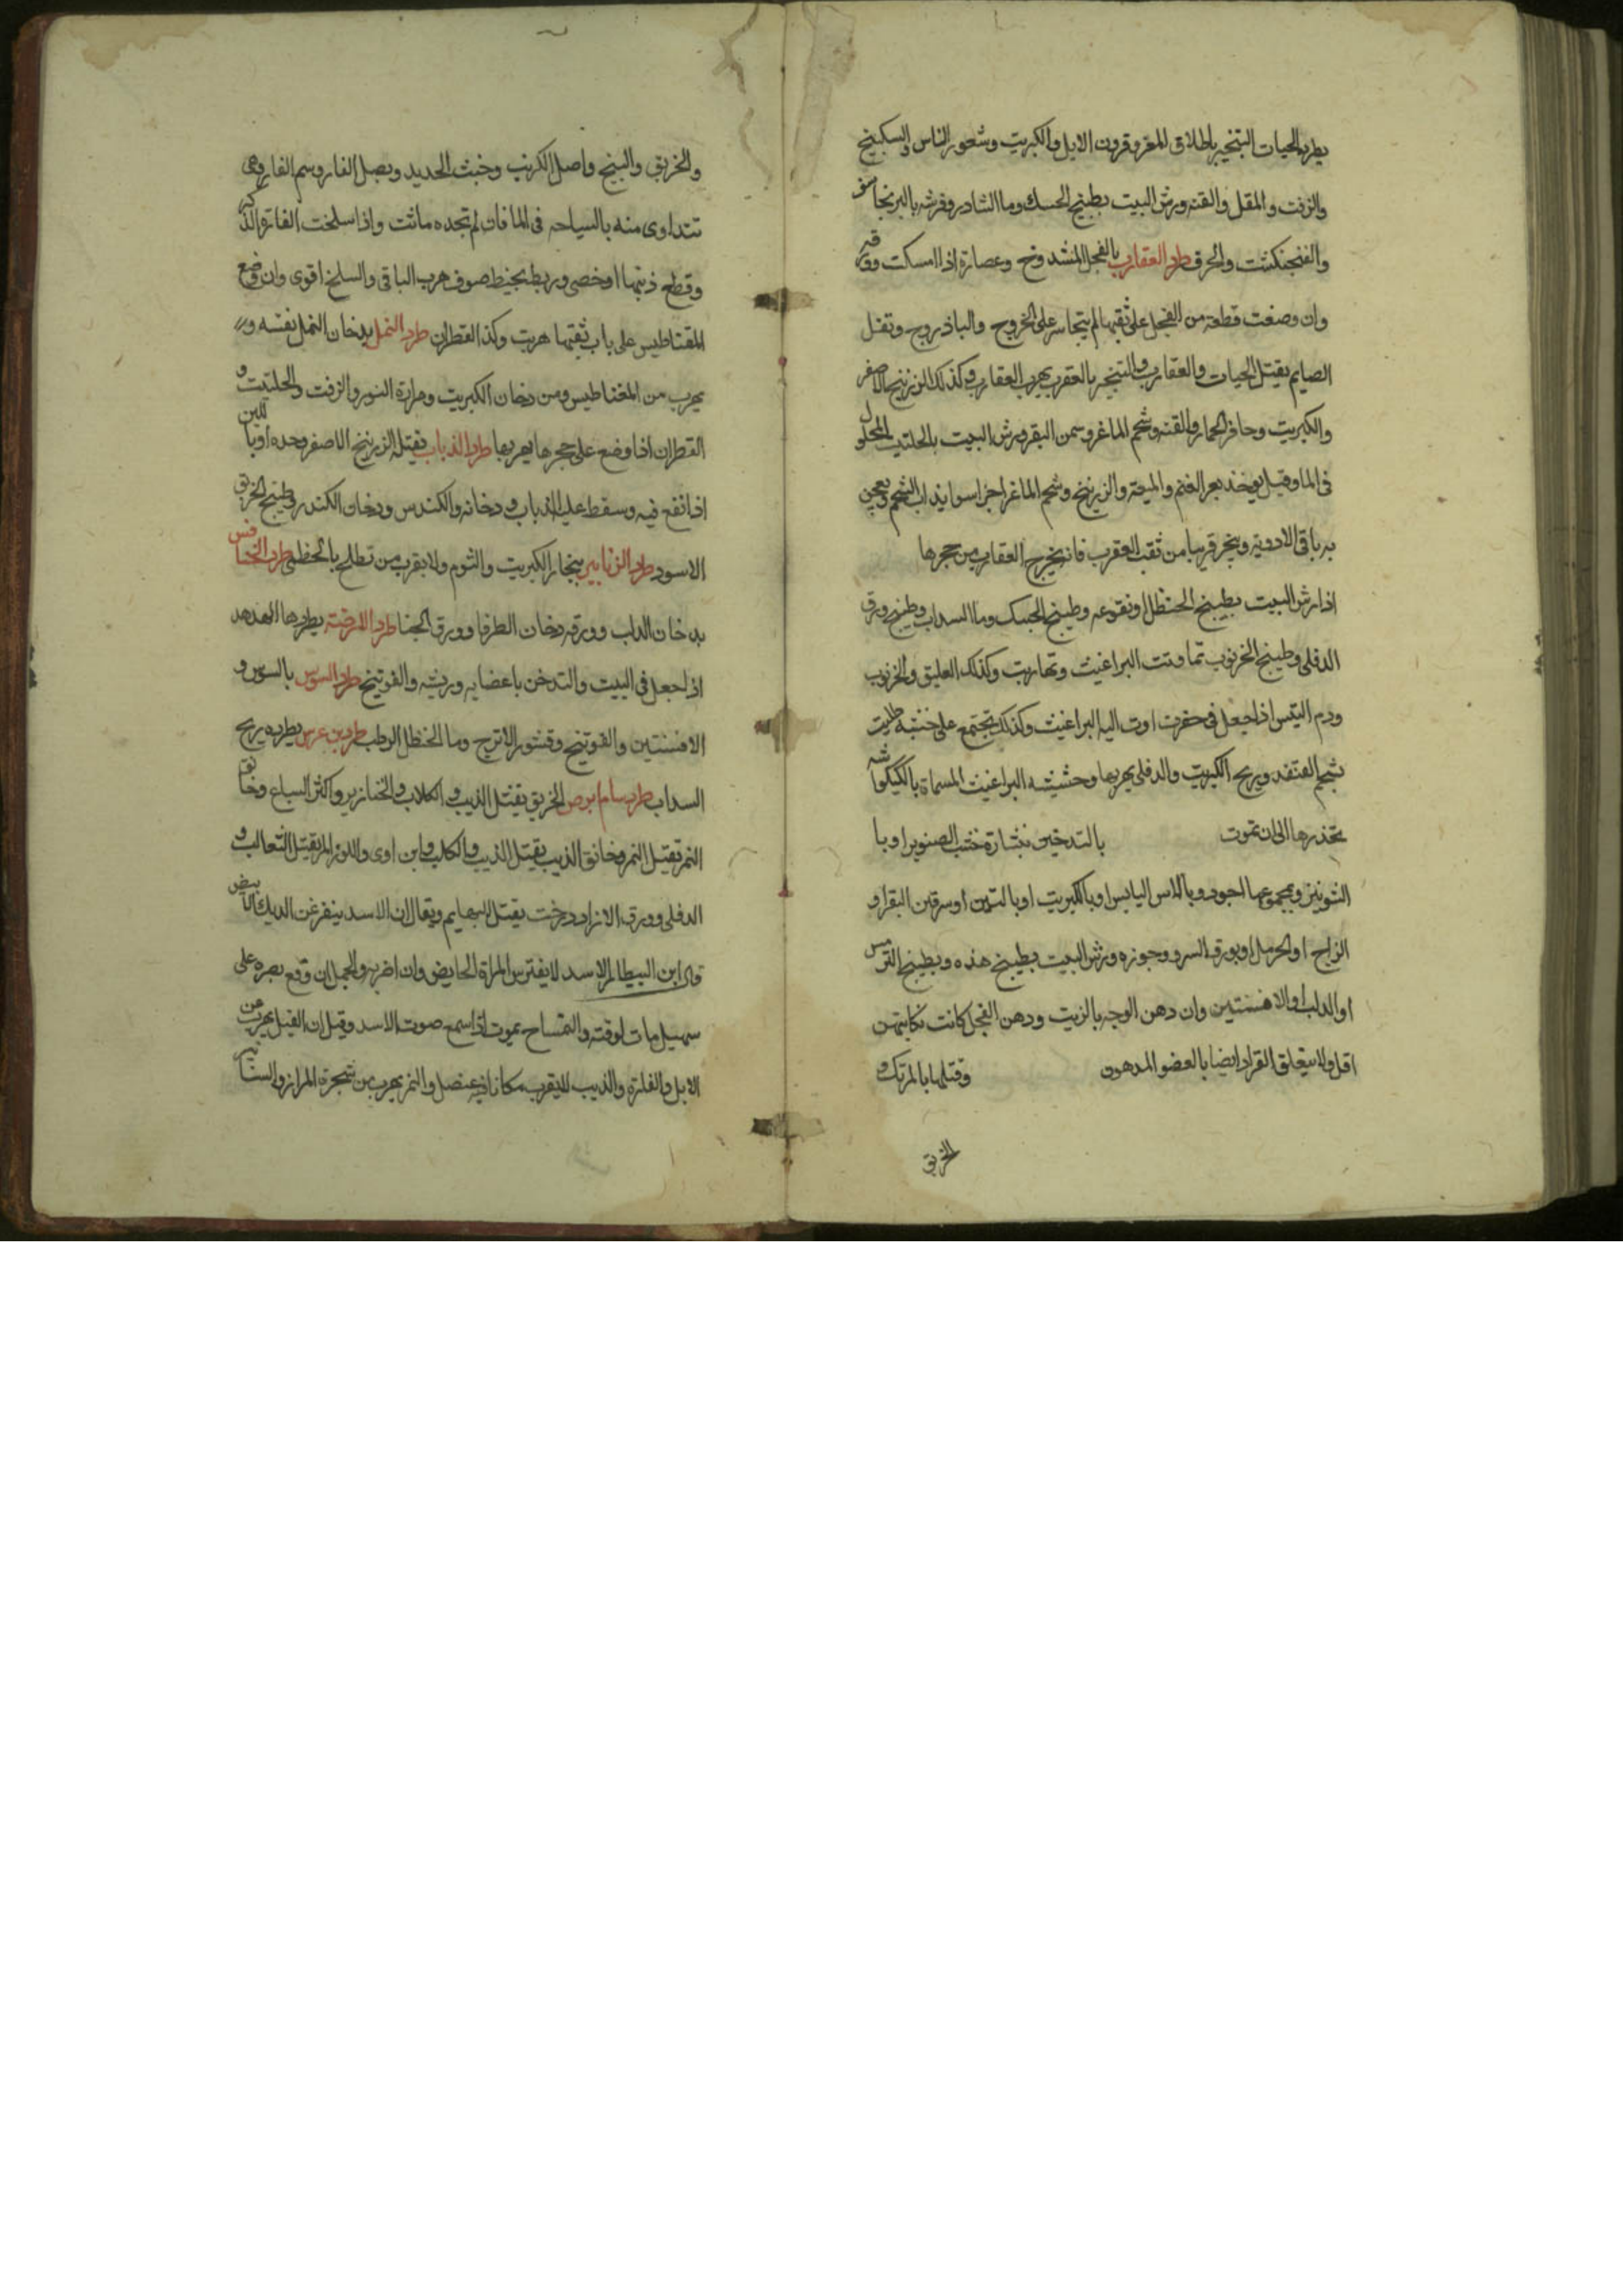 يطرد الحيات التبخير باظلاف المعز وقرون الايل والكبريت وشعور الناس والسكبينج
والزفت والمقل والقنه ورش البيت بطبيخ الحسك وما النشادر وفرشه بالبرنجاسف
والفنجنكشت والحرف طرد العقارب بالفجل المشدوخ وعصارة اذا امسكت وورقه
وان وضعت قطعة من الفجل على ثقبها لم يتجاسر على الخروج والباذروج وتفل
الصايم يقتل الحيات والعقارب والتبخير بالعقرب يهرب العقارب وكذلك الزرنيخ الاصفر
والكبريت وحافر الحمار والقنه وشحم الماعز وسمن البقر ورش البيت بالحلتيت المحلول
فى الما وقيل يوخذ بعر الغنم والميعة والزرنيخ وشحم الماعز اجزا سوا يذاب الشحم ويعجن
به باقى الادوية ويبخر قريبا من ثقب العقرب فانه يخرج العقارب من حجرها
اذا رش البيت بطبيخ الحنظل او نقوعه وطبيخ الحسك وما السداب وطبيخ ورق
الدفلى وطبيخ الخرنوب تماوتت البراغيث وتهاربت وكذلك العليق والخرنوب
ودم التيس اذا جعل فى حفرة اوت اليه البراغيث وكذلك تجتمع على خشبة طليت
بشحم القنفد وبريح الكبريت والدفلى يهربها وحشيشه البراغيث المسماة بالكيكواشه
تخدرها الى ان تموت بالتدخين بنشارة خشب الصنوبر او با
الشونيز وبمجموعها اجود وبالاس اليابس او بالكبريت او بالتبن او سرقين البقر او
الزاج او الحرمل او بورق السرو وجوزه ورش البيت بطبيخ هذه وبطبيخ الترمس
او الدلب او الافسنتين وان دهن الوجه بالزيت ودهن الفجل كانت نكايتهن
اقل ولا يتعلق القراد ايضا بالعضو المدهون وقتلها بالمرتك و
الخربق
والخربق والبنج واصل الكرنب وخبث الحديد وبصل الفار وسم الفار وهى
تتداوى منه بالسباحه فى الما فان لم تجده ماتت واذا سلخت الفارة الذكر
وقطع ذنبها او خصى وربط بخيط صوف هرب الباقى والسلخ اقوى وان وضع
المقناطيس على باب ثقبها هربت وكذا القطران طرد النمل بدخان النمل نفسه و
يهرب من المغناطيس ومن دخان الكبريت ومرارة الثور والزفت والحلتيت و
القطران اذا وضع على حجرها يهربها طرد الذباب يقتله الزرنيخ الاصفر وحده او باللبن
اذا نقع فيه وسقط عليه الذباب و دخانه والكندس ودخان الكندر وطبيخ الخربق
الاسود طرد الزنابير ببخار الكبريت والثوم ولا يقرب من تطلخ بالخطمى طرد الخنافس
بدخان الدلب وورقه ودخان الطرفا وورق الحنا طرد الارضة يطردها الهدهد
اذا جعل فى البيت والتدخن باعضايه وريشه والفوتنج طرد السوس بالسوس و
الافسنتين والفوتنج وقشور الاترج وما الحنظل الرطب طرد بن عرس يطرده بريح
السداب طرد سام ابرص الخربق يقتل الذيب والكلاب والخنازير واكثر السباع وخانق
النمر تقتل النمر وخانق الذيب يقتل الذيب والكلب وابن اوى واللوز المر يقتل الثعالب و
الدفلى وورق الازاددرخت يقتل البهايم ويقال ان الاسد ينفر عن الديك الابيض
قال ابن البيطار الاسد لا يفترس المراة الحايض وان اضر به والجمل ان وقع بصره على
سهيل مات لوقته والتمساح يموت اذا سمع صوت الاسد وقيل ان الفيل يهرب من
الابل والفارة والذيب لا يقرب مكانا فيه عنصل والنمر يهرب من شجرة المران والسنانير